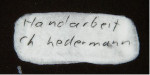 Handarbeit
ch hedermann